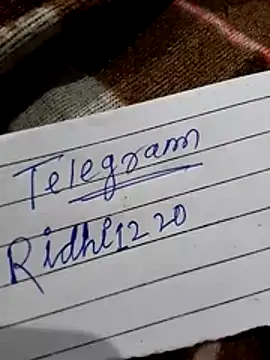 Telegram
Ridhi1220